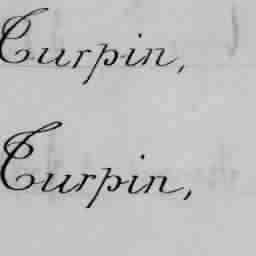 Turpin,
Turpin,